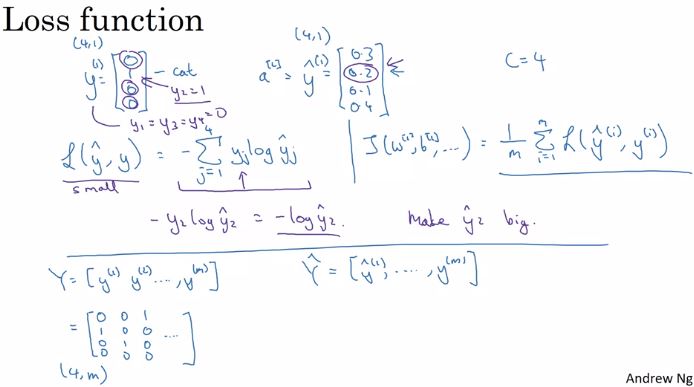 Loss function
(4,1)
y^(i) = [0 1 0 0] - cat
y₂=1
y₁ = y₃ = y₄ = 0
(4,1)
a^[L] = ŷ^(i) = [0.3 0.2 0.1 0.4]
C=4
L(ŷ, y) = - Σ_{j=1}^{4} y_j log ŷ_j
small
J(w^[1], b^[1], ...) = 1/m Σ_{i=1}^{m} L(ŷ^(i), y^(i))
- y₂ log ŷ₂ = - log ŷ₂. Make ŷ₂ big.
Y = [y^(1) y^(2) ..., y^(m)]
Ŷ = [ŷ^(1), ...., y^(m)]
= [0 0 1
1 0 0 ....
0 1 0
0 0 0]
(4,m)
Andrew Ng